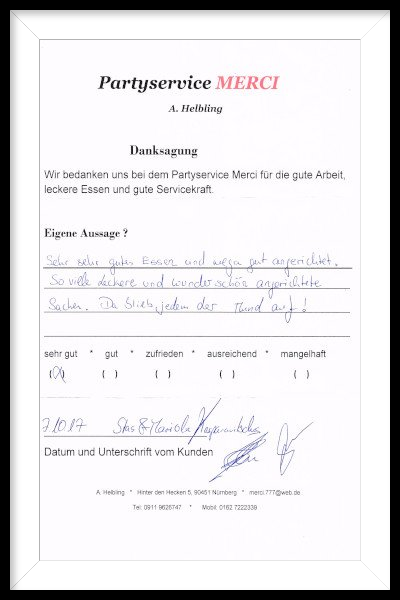 Partyservice MERCI
A. Helbling
Danksagung
Wir bedanken uns bei dem Partyservice Merci für die gute Arbeit,
leckere Essen und gute Servicekraft.
Eigene Aussage ?
Sehr sehr gutes Essen und gut angerichtet.
So viele leckere und wunderschön angerichtete
Sachen. Da blieb jedem der Mund auf!
sehr gut * gut * zufrieden * ausreichend * mangelhaft
(X) ( ) ( ) ( ) ( )
7.10.17 Stas & Mariola
Datum und Unterschrift vom Kunden
A. Helbling * Hinter den Hecken 5, 90451 Nürnberg * merci.777@web.de
Tel: 0911 9626747 * Mobil: 0162 7222339